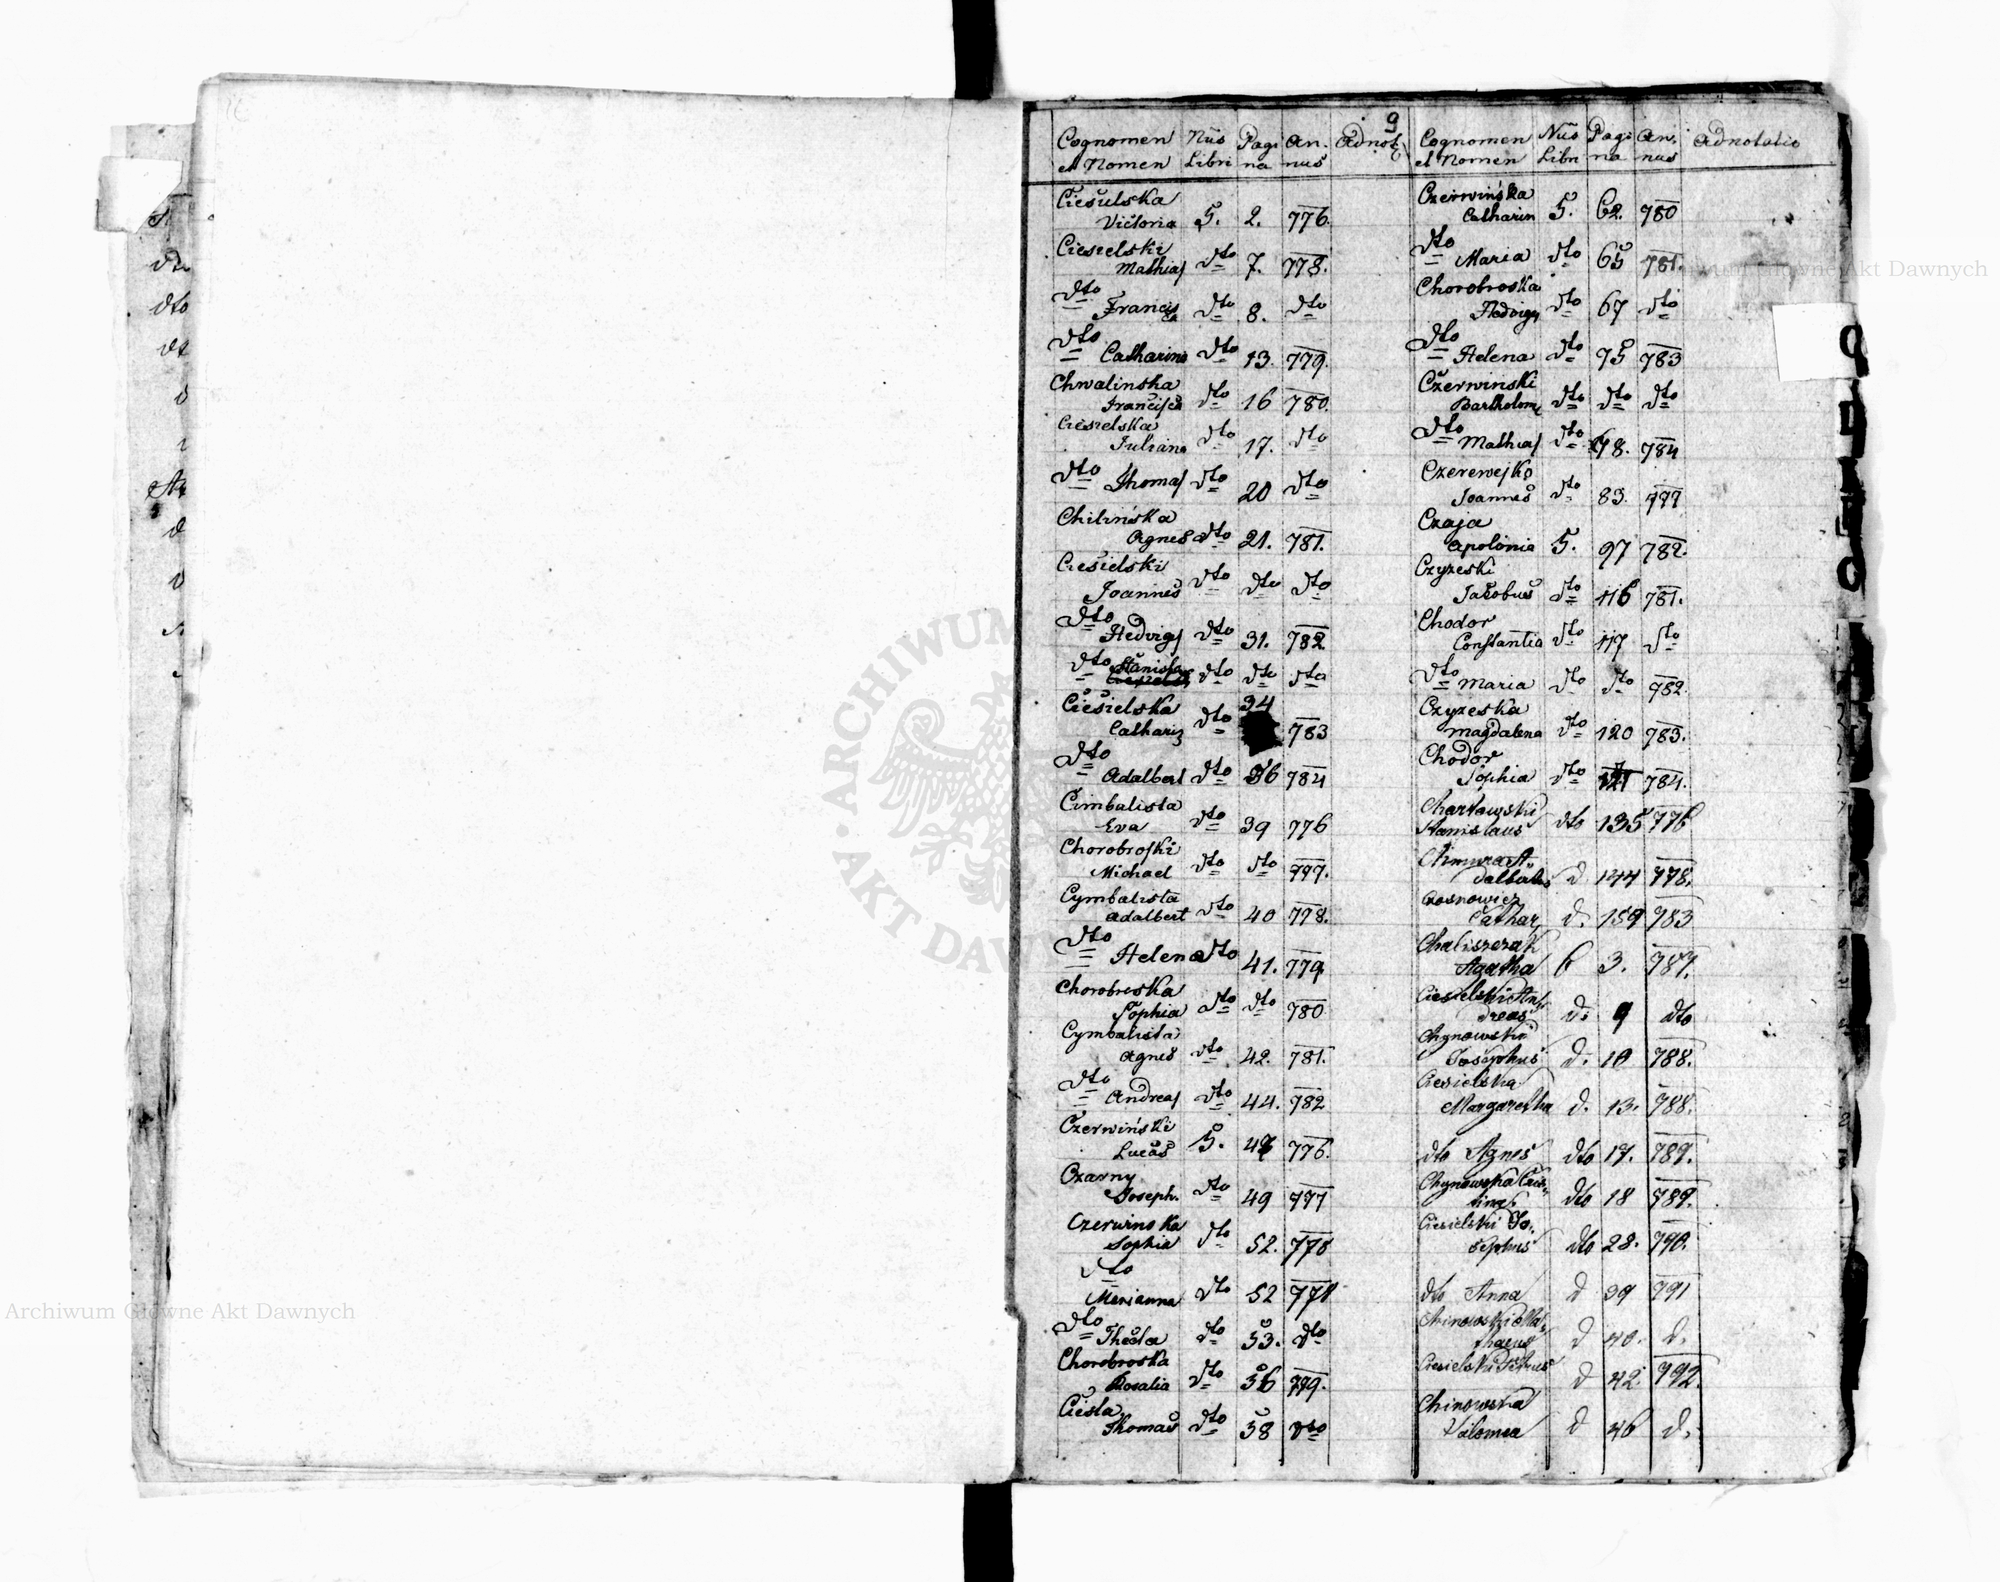 9
Cognomen Nus Pagi An- Adnot
et Nomen Libri na nus
Ciesielska
Victoria 5. 2. 776.
Ciesielski
Mathias dto 7. 778.
dto
Francisca dto 8. dto
dto
Catharina dto 13. 779.
Chwalinska
Francisca dto 16 780.
Ciesielska
Juliana dto 17. dto
dto Thomas dto 20 dto
Chilińska
Agnes dto 21. 781.
Ciesielski
Joannes dto dto dto
dto
Hedvigs dto 31. 782
dto Stanisla dto dto dto
Ciesielska 34
Cathari dto 783
dto
Adalbert dto 36 784
Cimbalista
Eva dto 39 776
Chorobrofki
Michael dto dto 777.
Cymbalista
Adalbert dto 40 778.
dto
Helena dto 41. 779.
Chorobroska
Sophia dto dto 780
Cymbalista
Agnes dto 42. 781.
dto
Andreas dto 44. 782
Czerwiński
Lucas 5. 776.
Czarny
Joseph. dto 49 777
Czerwinska
Sophia dto 52. 778
dto
Marianna dto 52 778
dto
Thecla dto 53. dto
Chorobroska
Rosalia dto 56 779.
Ciesla
Thomas dto 58 dto
Cognomen Nus Pagi An- Adnotatio
et Nomen Libri na nus
Czerwińska
Catharin 5. 62. 780
dto
Maria dto 65 781.
Chorobroska
Hedvigs dto 67 dto
dto
Helena dto 75 783
Czerwinski
Bartholom dto dto dto
dto
Mathias dto 78. 784
Czerewejko
Joannes dto 83. 777
Czaja
Apolonia 5. 97 782.
Czyzeski
Jakobus dto 116 781.
Chodor
Constantia dto 117 dto
dto
Maria dto dto 782.
Czyzeska
Magdalena dto 120 783.
Chodor
Sophia dto 121 784.
Chartowski
Stanislaus dto 135 776
Chmura A-
dalbertus d 144 778.
Czosnowicz
Cathar d. 159 783
Chaliszczak
Agatha 6 3. 787.
Ciesielski An-
dreas d. 9 dto
Chynowski
Josephus d. 10 788.
Ciesielska
Margaretha d. 13. 788.
dto Agnes dto 17. 789.
Chynowska
dto 18 789.
Ciesielski Jo-
sephus dto 28. 790.
dto Anna d 39 791
Chinowski Mat-
thaeus d 40. d.
Ciesielski Petrus d 42 792.
Chinowska
d 46 d.
ARCHIWUM
AKT DAWN
Archiwum Główne Akt Dawnych
Archiwum Główne Akt Dawnych